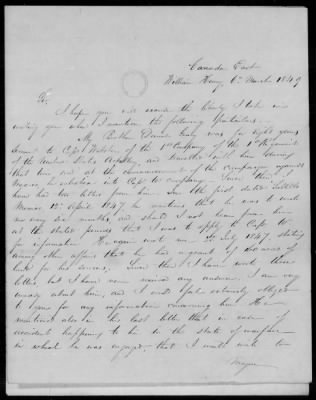 Canada East
William Henry 6th March 1849
Sir,
I hope you will excuse the liberty I take in
writing you when I mention the following particulars.
My Brother Daniel was for eight years
Servant to Capt Webster of the 1st Company of the 1st Regiment
of the United States Artillery, and travelled with him during
that time and at the commencement of the campaign against
Mexico, he into Capt Company. Since then I
have had two letters from him. In the first dated
Mexico 12th April 1847 he mentions that he was to write
me every six months, and should I not hear from him
at the stated periods that I was to apply to Capt
for information. He again wrote me 2nd July 1847 stating
among other affairs that he had a grant of 160 acres of
land for his services, Since then I have wrote three
letters, but I have never received any answer. I am very
uneasy about him, and I would feel extremely obliged
to you for any information concerning him. He
mentioned also in his last letter that in case of
accident happening to him in the state of warfare
in which he was engaged, that I would write to